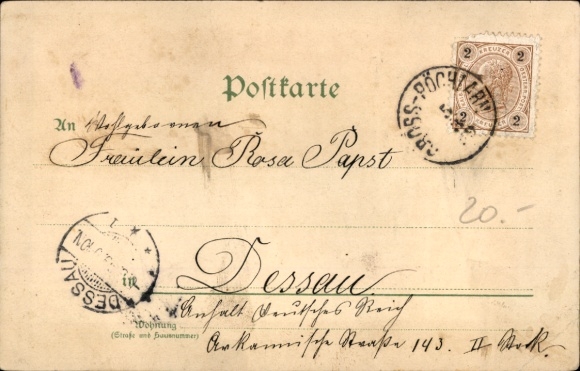 Postkarte
2 KREUZER 2
2 2
GROSS-PÖCHLARN
An Wohlgeboren
Fräulein Rosa Papst
20.-
DESSAU
1
in Dessau
Anhalt Deutsches Reich
Wohnung
(Straße und Hausnummer)
Askanische Straße 143. II Stock.